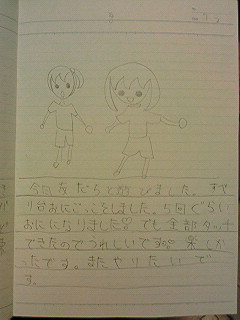 今日友だちと遊びました。すべ
り台おにごっこをしました。5回ぐらい
おにになりました♡でも全部タッチ
できたのでうれしいです。楽しか
ったです。またやりたいで
す。